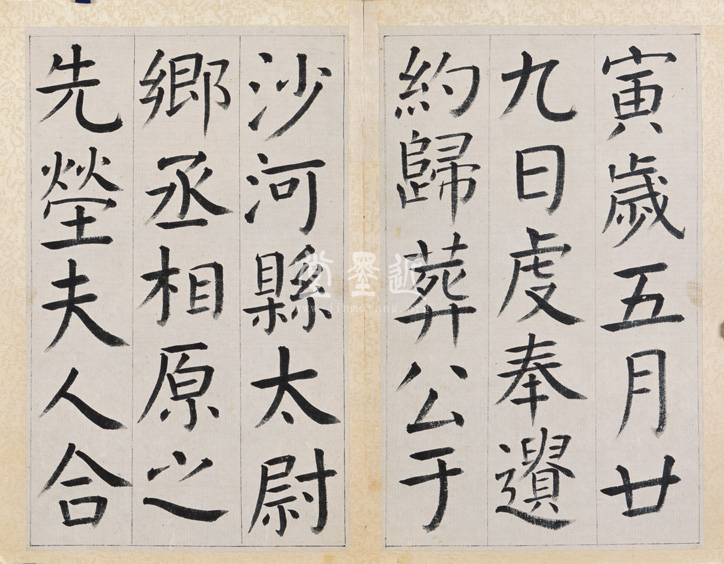 寅歲五月廿
九日虔奉遺
約歸葬公于
沙河縣太尉
鄉丞相原之
先塋夫人合